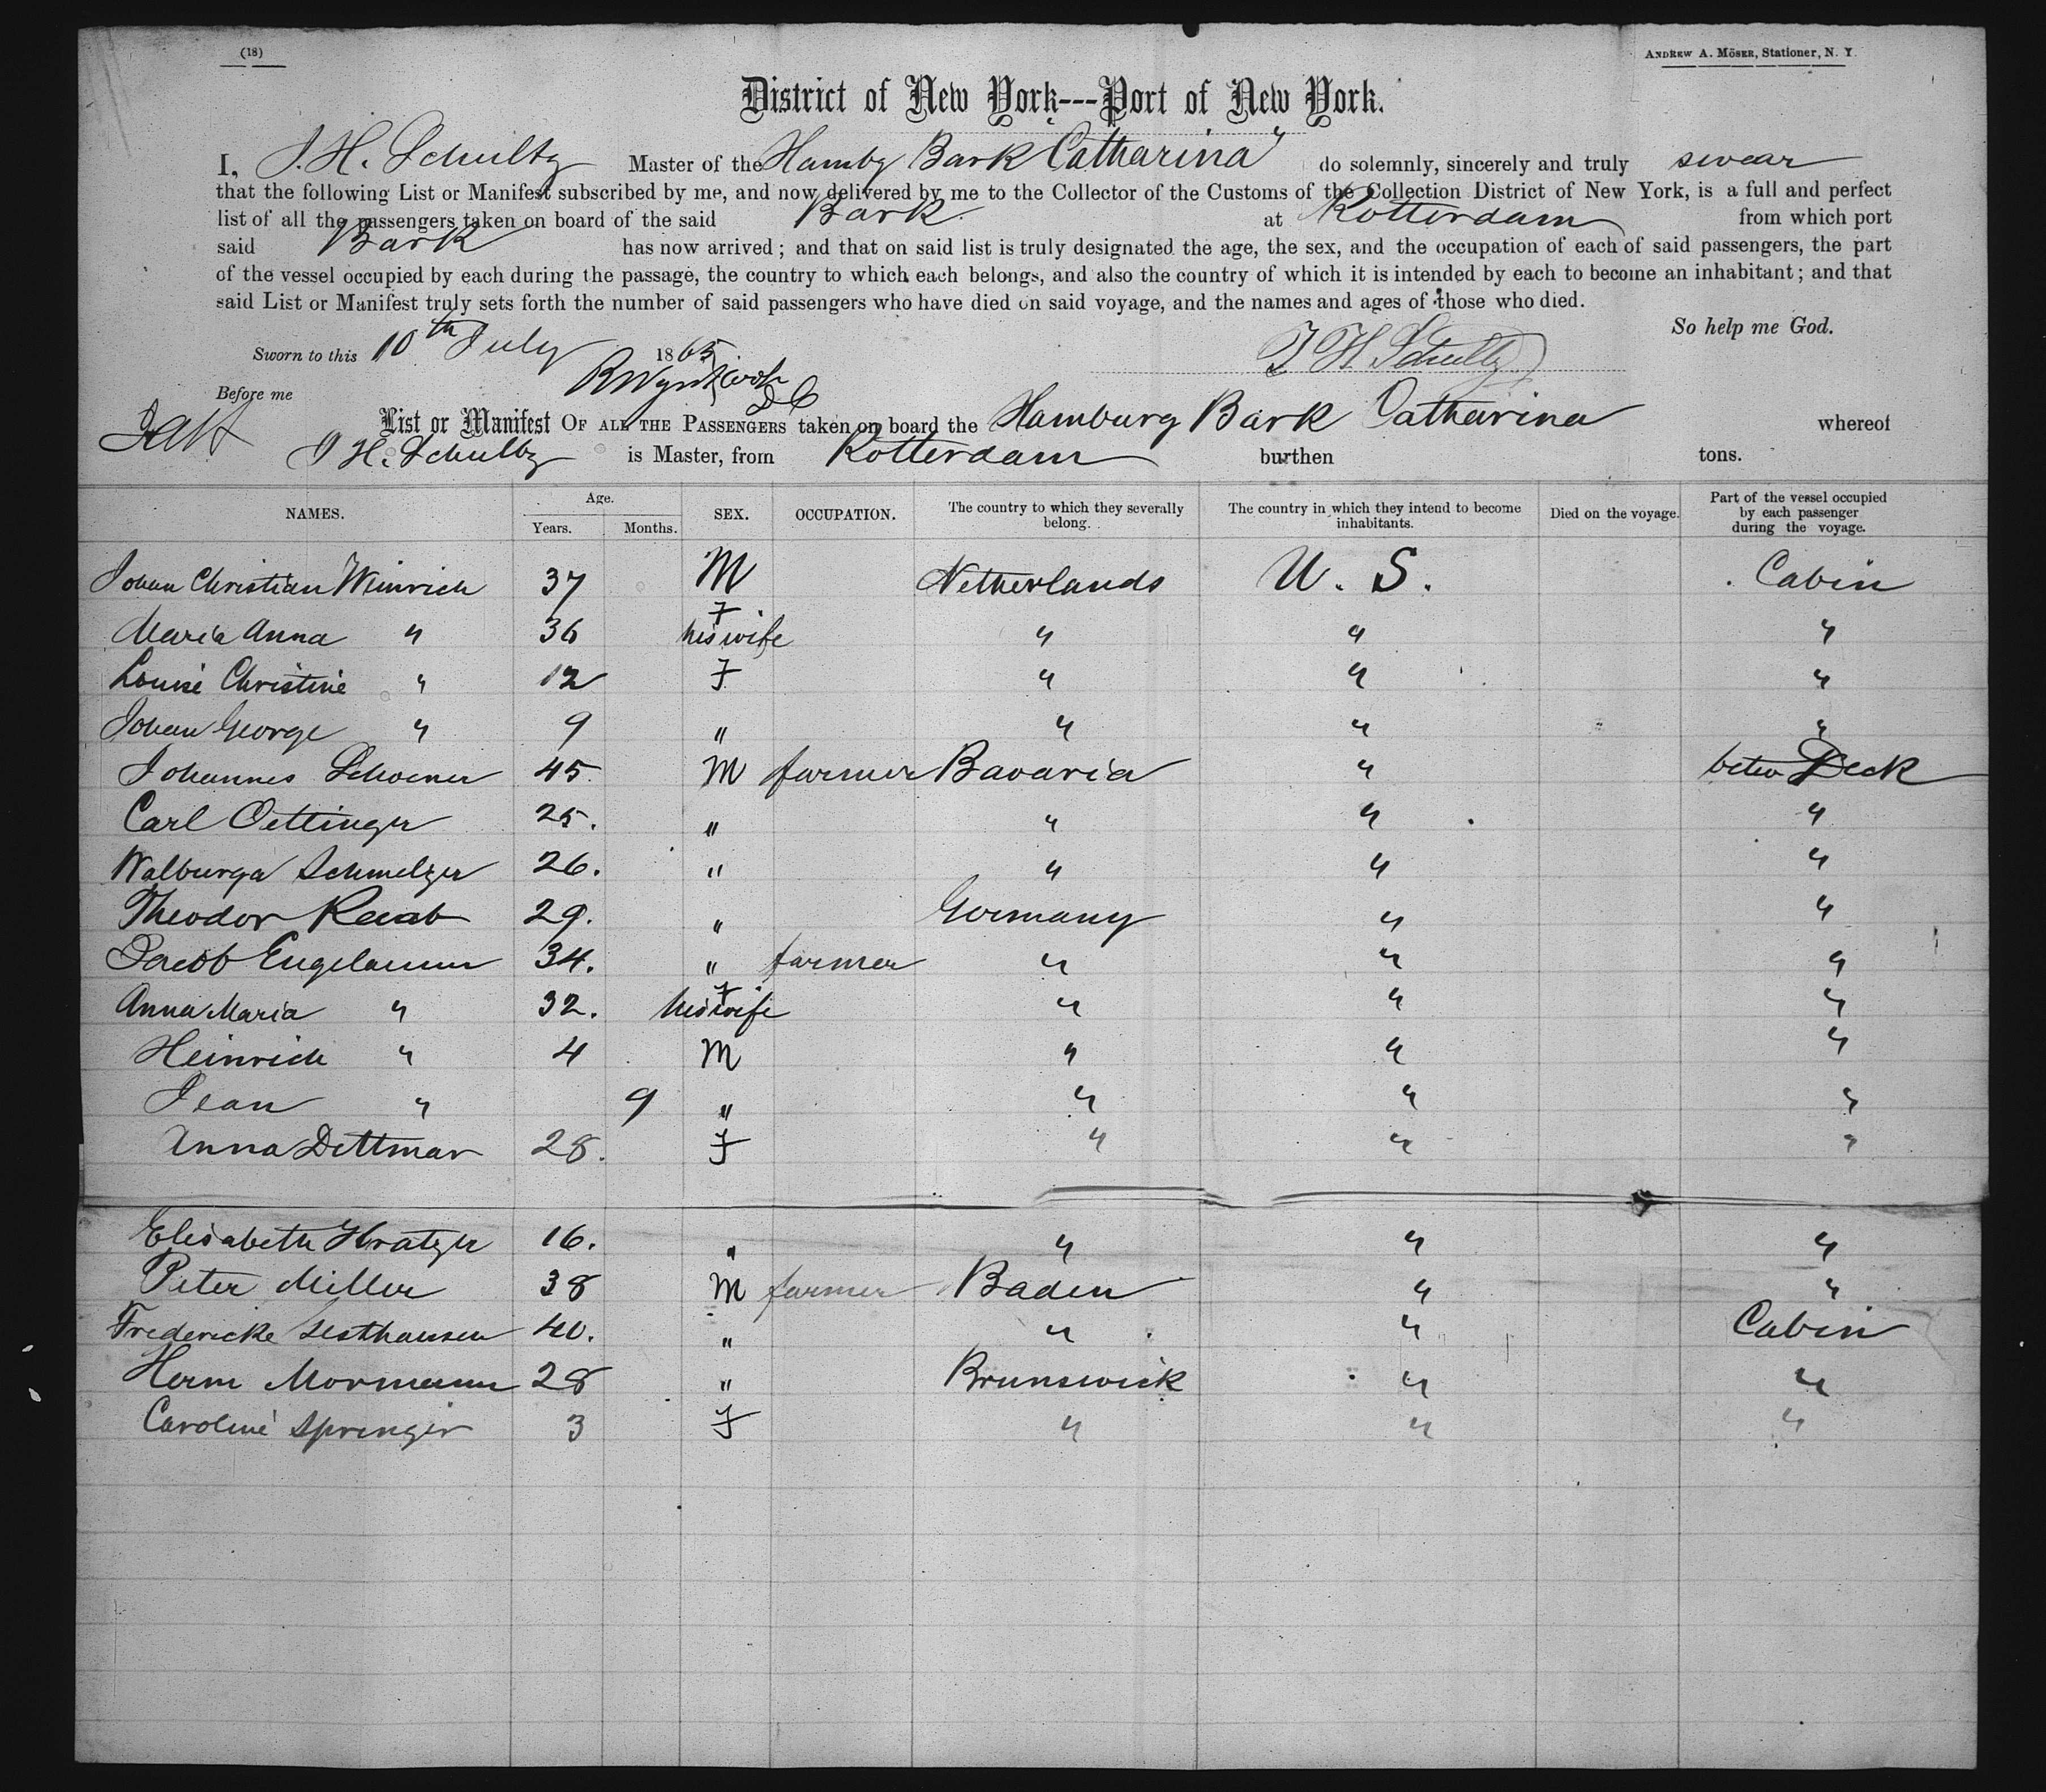 (18)
ANDREW A. MÖSER, Stationer, N. Y.
District of New York---Port of New York.
I, J. H. Schultz Master of the Hambg Bark Catharina" do solemnly, sincerely and truly swear
that the following List or Manifest subscribed by me, and now delivered by me to the Collector of the Customs of the Collection District of New York, is a full and perfect
list of all the passengers taken on board of the said Bark at Rotterdam from which port
said Bark has now arrived; and that on said list is truly designated the age, the sex, and the occupation of each of said passengers, the part
of the vessel occupied by each during the passage, the country to which each belongs, and also the country of which it is intended by each to become an inhabitant; and that
said List or Manifest truly sets forth the number of said passengers who have died on said voyage, and the names and ages of those who died.
So help me God.
Sworn to this 10th July 1865 J H Schultz
Before me
List or Manifest OF ALL THE PASSENGERS taken on board the Hamburg Bark Catharina whereof
J H. Schultz is Master, from Rotterdam burthen tons.
NAMES. Age. Years. Months. SEX. OCCUPATION. The country to which they severally belong. The country in which they intend to become inhabitants. Died on the voyage. Part of the vessel occupied by each passenger during the voyage.
Johan Christian Weinrich 37 M Netherlands U. S. Cabin
Maria Anna " 36 F his wife " " "
Louise Christine " 12 F " " "
Johan George " 9 " " " "
Johannes Schoener 45. M farmer Bavaria " betw Deck
Carl Oettinger 25. " " " "
Walburga Schmelzer 26. " " " "
Theodor Raab 29. " Germany " "
Jacob Engelmann 34. " farmer " " "
Anna Maria " 32. F his wife " " "
Heinrich " 4 M " " "
Jean " 9 " " " "
Anna Dittmar 28. F " " "
Elisabeth Kratzer 16. " " " "
Peter Miller 38 M farmer Baden " "
Fredericke 40. " " " Cabin
Herm Mormann 28 " Brunswick " "
Caroline Springer 3 F " " "